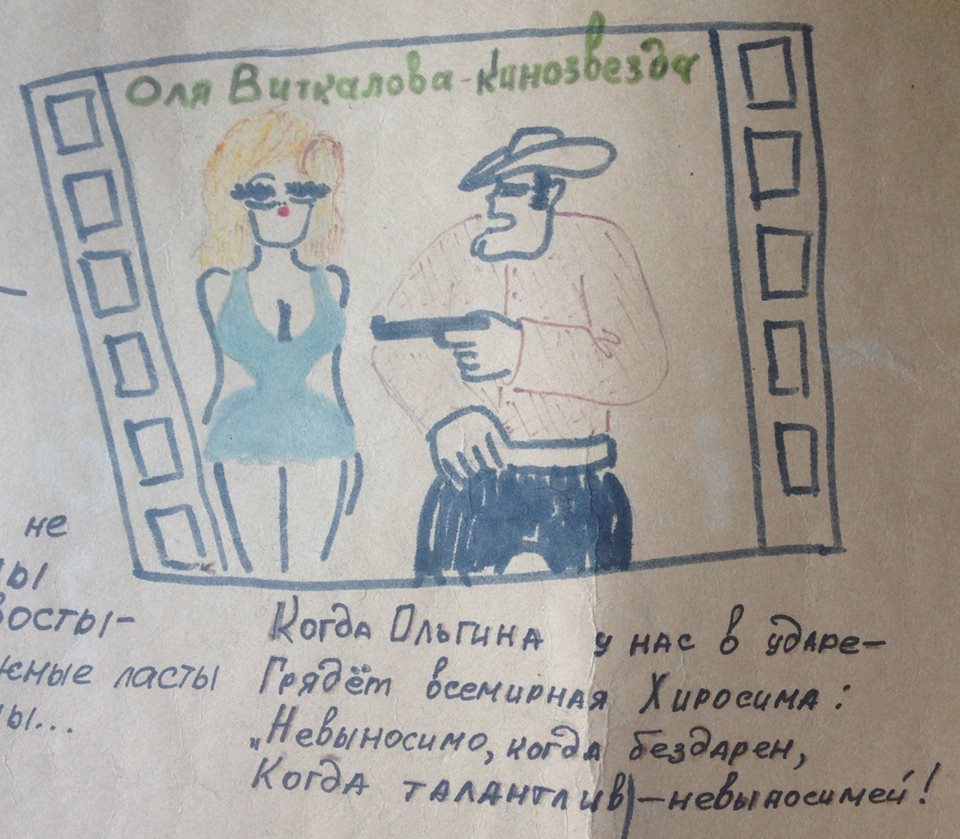 Оля Виткалова-кинозвезда
не
ы
восты-
жные ласты
ы...
Когда Ольгина у нас в ударе-
Грядёт всемирная Хиросима:
„Невыносимо, когда бездарен,
Когда талантлив)-невыносимей!